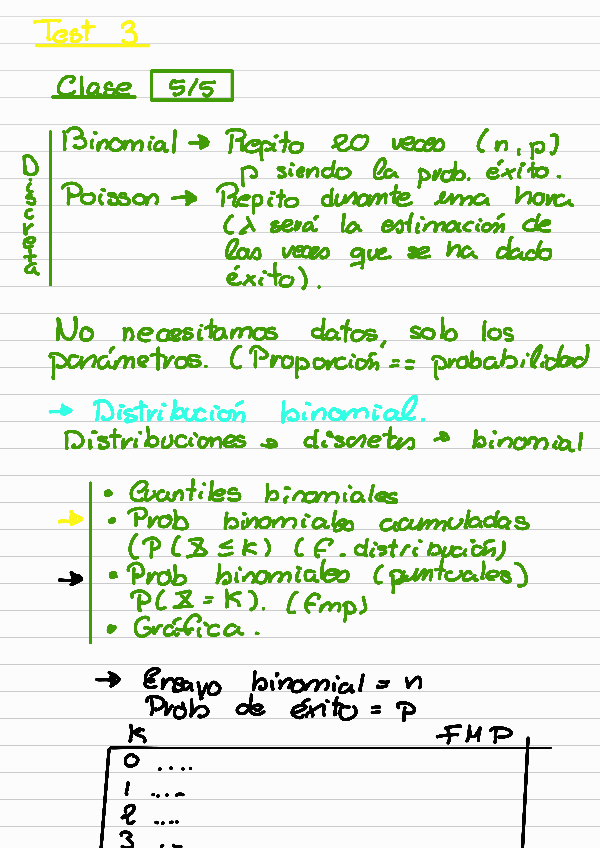 Test 3
Clase 5/5
Discreta
Binomial → Repito 20 veces (n, p)
p siendo la prob. éxito.
Poisson → Repito durante una hora
(λ será la estimación de
las veces que se ha dado
éxito).
No necesitamos datos, solo los
parámetros. (Proporción == probabilidad
→ Distribución binomial.
Distribuciones → discretas → binomial
• Cuantiles binomiales
→ • Prob binomiales acumuladas
(P(X ≤ K) (F. distribución)
→ • Prob binomiales (puntuales)
P(X = K). (fmp)
• Gráfica.
→ Ensayo binomial = n
Prob de éxito = p
K FMP
0 ....
1 ....
2 ....
3 ..